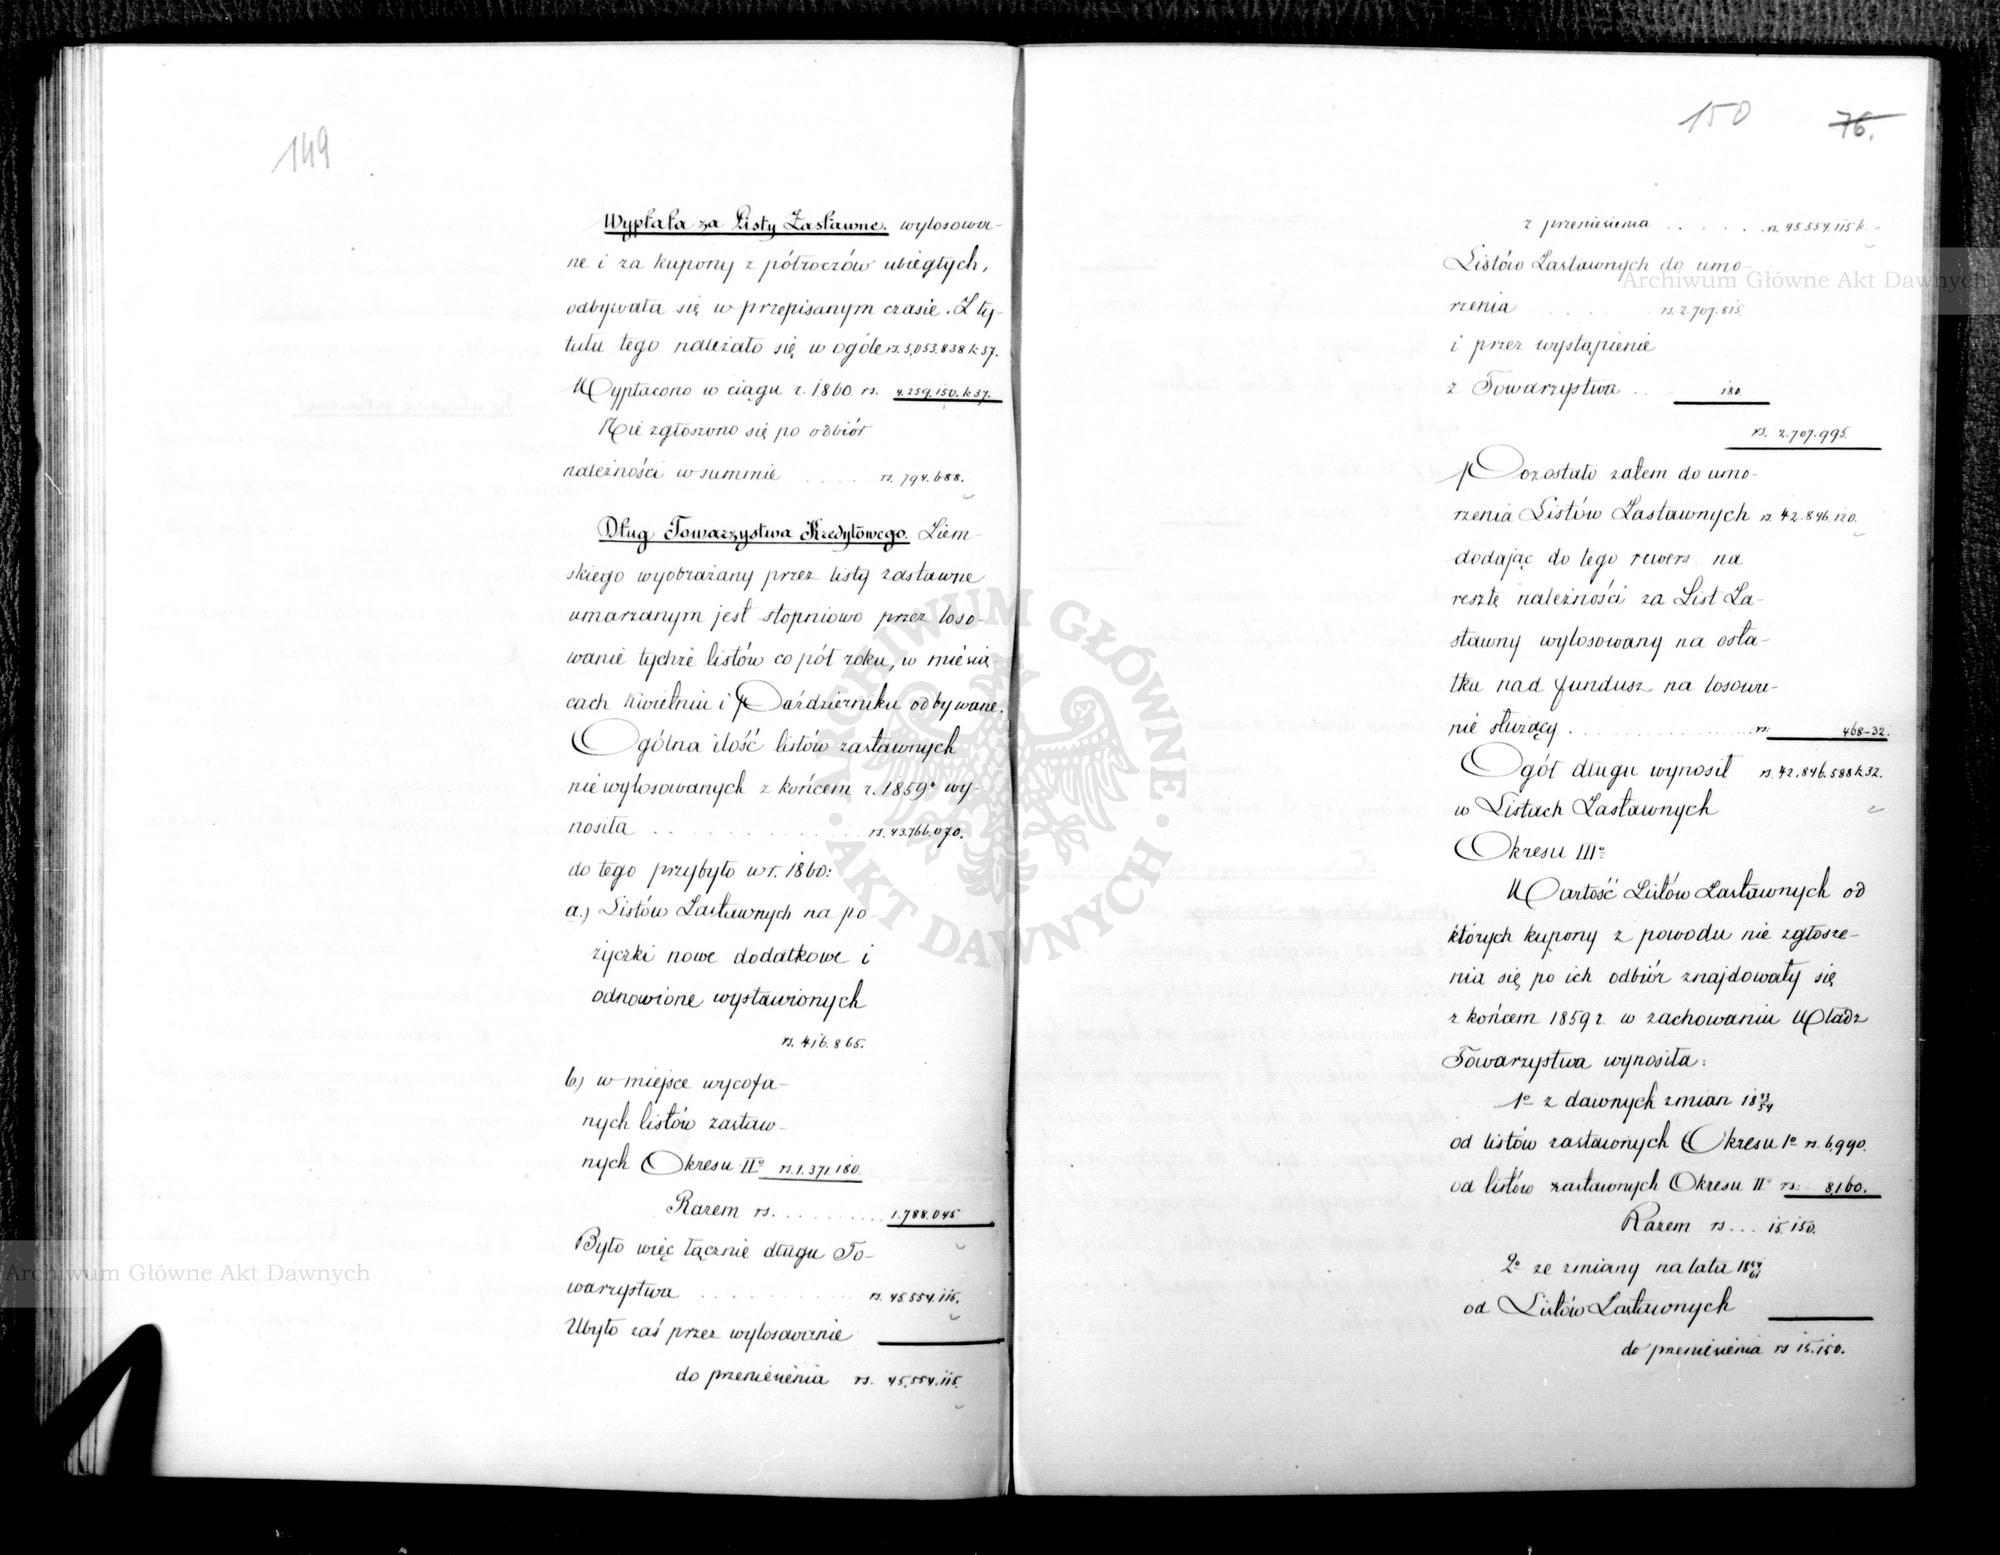 149
Wypłata za Listy Zastawne. wylosowa-
ne i za kupony z półroczów ubiegłych,
odbywała się w przepisanym czasie. Z ty-
tułu tego należało się w ogóle rs. 5,053.838 k 37.
Wypłacono w ciągu r. 1860 rs. 4.259.150. k 37.
Nie zgłoszono się po odbiór
należności w summie . . . . . rs. 794.688.
Dług Towarzystwa Kredytowego. Ziem-
skiego wyobrażany przez listy zastawne
umarzanym jest stopniowo przez loso-
wanie tychże listów co pół roku, w miesią-
cach Kwietniu i Październiku odbywane.
Ogólna ilość listów zastawnych
niewylosowanych z końcem r. 1859º wy-
nosiła . . . . . . . . . . . rs. 43.766.070.
do tego przybyło w r. 1860:
a.) Listów Zastawnych na po-
życzki nowe dodatkowe i
odnowione wystawionych
rs. 416.865.
b) w miejsce wycofa-
nych listów zastaw-
nych Okresu IIº rs. 1.371.180.
Razem rs. . . . . . . . . 1.788.045
Było więc łącznie długu To-
warzystwa . . . . . . . . . . rs. 45.554.115.
Ubyło zaś przez wylosowanie
do przeniesienia rs. 45.554.115.
150 76.
z przeniesienia . . . . . . rs. 45.554.115 k. -
Listów Zastawnych do umo-
rzenia . . . . . . . . rs. 2.707.815.
i przez wystąpienie
z Towarzystwa . . . 180.
rs. 2.707.995.
Pozostało zatem do umo-
rzenia Listów Zastawnych rs. 42.846.120.
dodając do tego rewers na
resztę należności za List Za-
stawny wylosowany na osta-
tku nad fundusz na losowa-
nie służący . . . . . . . . . . . rs. 468-32.
Ogół długu wynosił rs. 42.846.588 k 32.
w Listach Zastawnych
Okresu IIIº
Wartość Listów Zastawnych od
których kupony z powodu nie zgłosze-
nia się po ich odbiór znajdowały się
z końcem 1859 r. w zachowaniu Władz
Towarzystwa wynosiła:
1º z dawnych zmian 18 33/54
od listów zastawnych Okresu 1º rs. 6,990.
od listów zastawnych Okresu IIº rs. 8,160.
Razem rs. . . 15.150.
2º ze zmiany na lata 18 54/61
od Listów Zastawnych
do przeniesienia rs 15.150.
Archiwum Główne Akt Dawnych
Archiwum Główne Akt Dawnych
ARCHIWUM GŁÓWNE
· AKT DAWNYCH ·